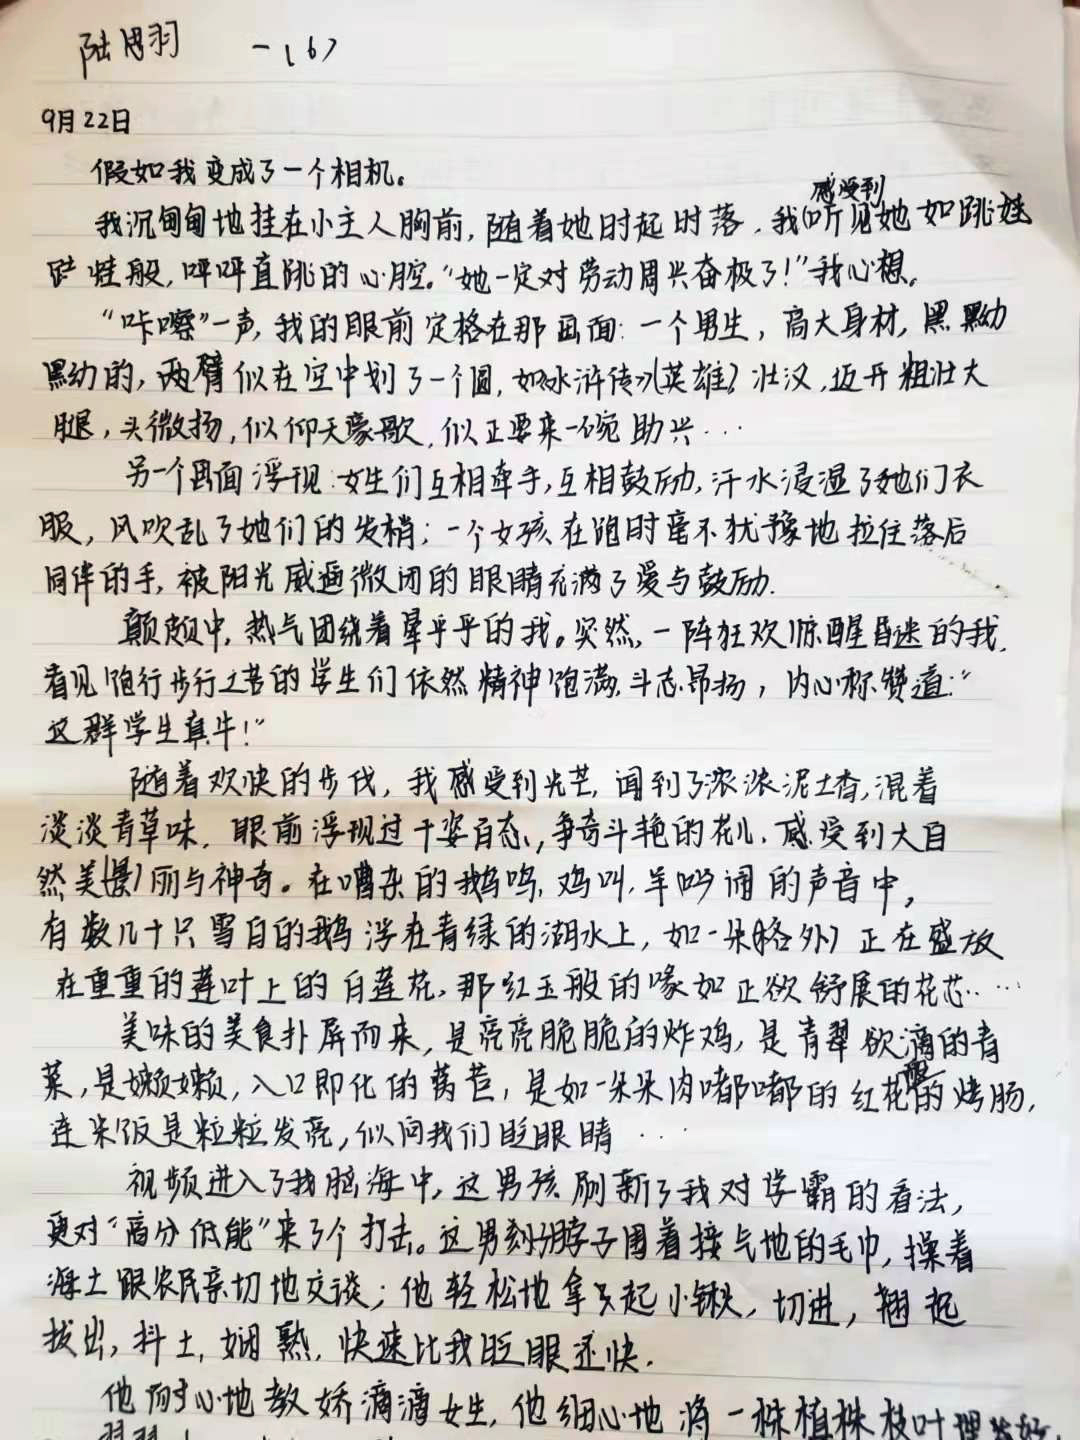 陆思羽 一(6)
9月22日
假如我变成了一个相机。
感受到
我沉甸甸地挂在小主人胸前，随着她时起时落，我(听见她如跳娃
蛙般，呯呯直跳的心腔。“她一定对劳动周兴奋极了！”我心想。
“咔嚓”一声，我的眼前定格在那画面：一个男生，高大身材，黑黝
黝的，两臂似在空中划了一个圆，如水浒传(英雄)壮汉，迈开粗壮大
腿，头微扬，似仰天豪歌，似正要来一碗助兴…
另一个画面浮现：女生们互相牵手，互相鼓励，汗水浸湿了她们衣
服，风吹乱了她们的发梢；一个女孩在跑时毫不犹豫地拉住落后
同伴的手，被阳光威逼微闭的眼睛充满了爱与鼓励.
颠颇中，热气团绕着晕乎乎的我。突然，一阵狂欢惊醒昏迷的我，
看见饱行步行之苦的学生们依然精神饱满，斗志昂扬，内心称赞道：“
这群学生真牛！”
随着欢快的步伐，我感受到光芒，闻到了浓浓泥土香，混着
淡淡青草味，眼前浮现过千姿百态，争奇斗艳的花儿，感受到大自
然美(景)丽与神奇。在嘈杂的鹅鸣，鸡叫，羊叫闹的声音中，
有数几十只雪白的鹅浮在青绿的湖水上，如一朵(格外)正在盛放
在重重的莲叶上的白莲花，那红玉般的喙如正欲舒展的花芯……
美味的美食扑屏而来，是亮亮脆脆的炸鸡，是青翠欲滴的青
菜，是嫩嫩，入口即化的莴苣，是如一朵朵肉嘟嘟的红花的烤肠，
连米饭是粒粒发亮，似向我们眨眼睛…
视频进入了我脑海中，这男孩刷新了我对学霸的看法，
更对“高分低能”来了个打击。这男孩脖子围着接气地的毛巾，操着
海土跟农民亲切地交谈；他轻松地拿起小锹，切进，翘起
拔出，抖土，娴熟，快速比我眨眼还快.
他耐心地教娇滴滴女生，他细心地将一株植株枝叶理